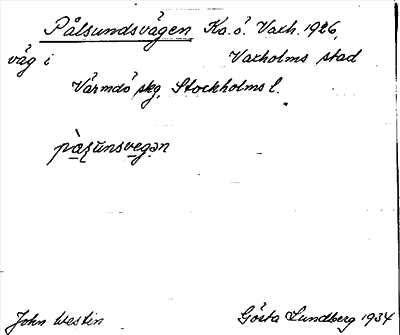 Pålsundsvägen Ka. ö. Vaxh. 1926,
väg i Vaxholms stad
Värmdö skg, Stockholms l.
pàsu̇nsvegən
John Westin Gösta Lundberg 1934